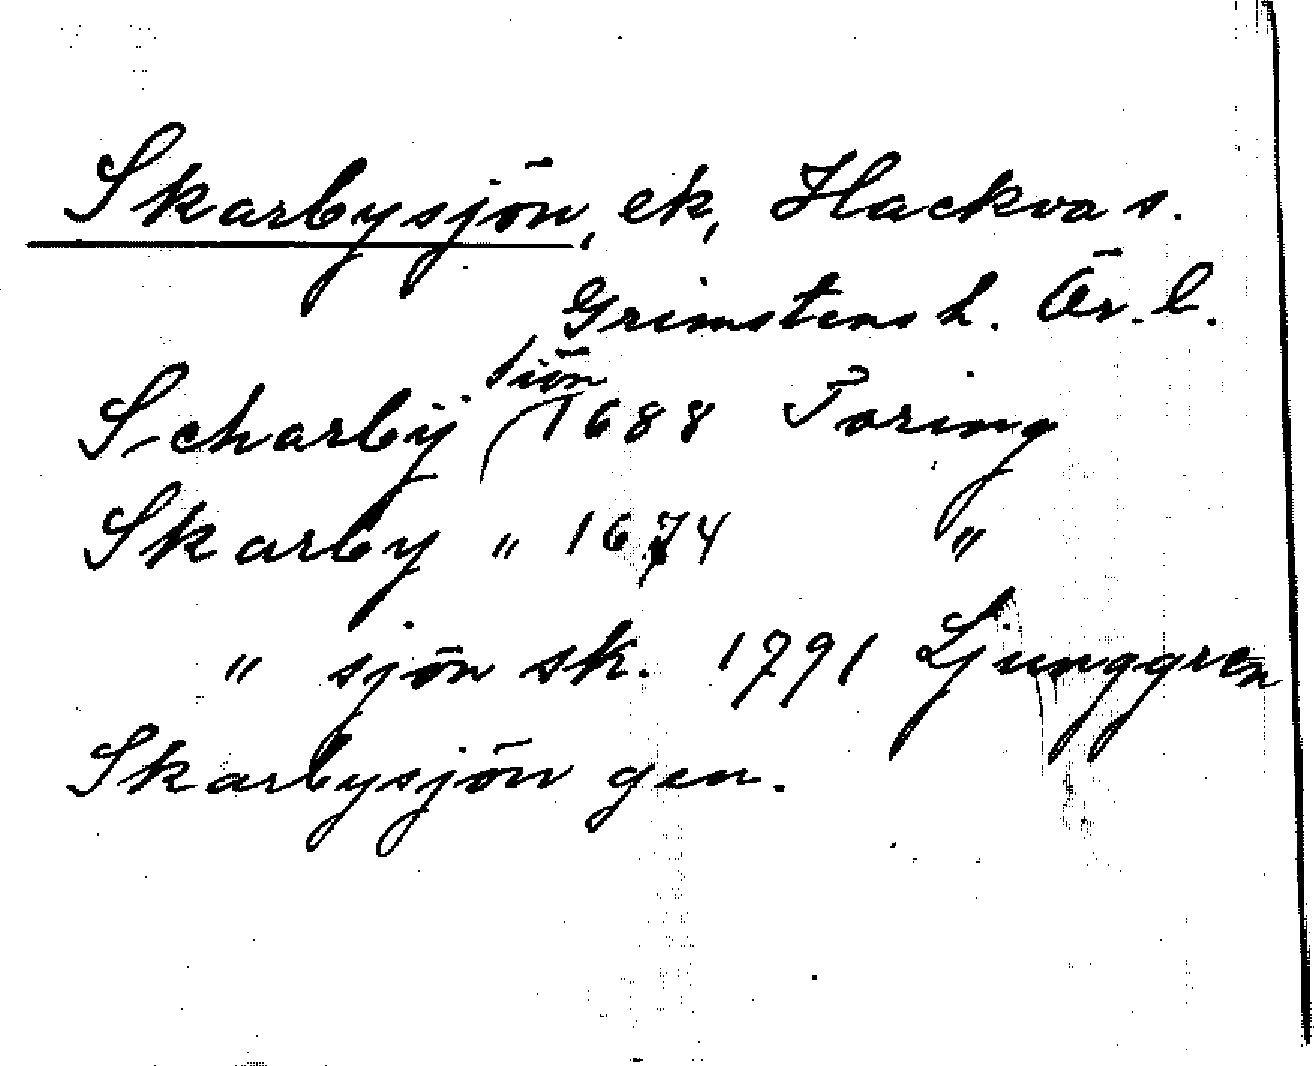 Skarbysjön, ek, Hackva s.
Grimstens h. Ör. l.
Scharbÿ siön 1688 Toring
Skarby " 1674 "
" sjön sk. 1791 Ljunggren
Skarbysjön gen.